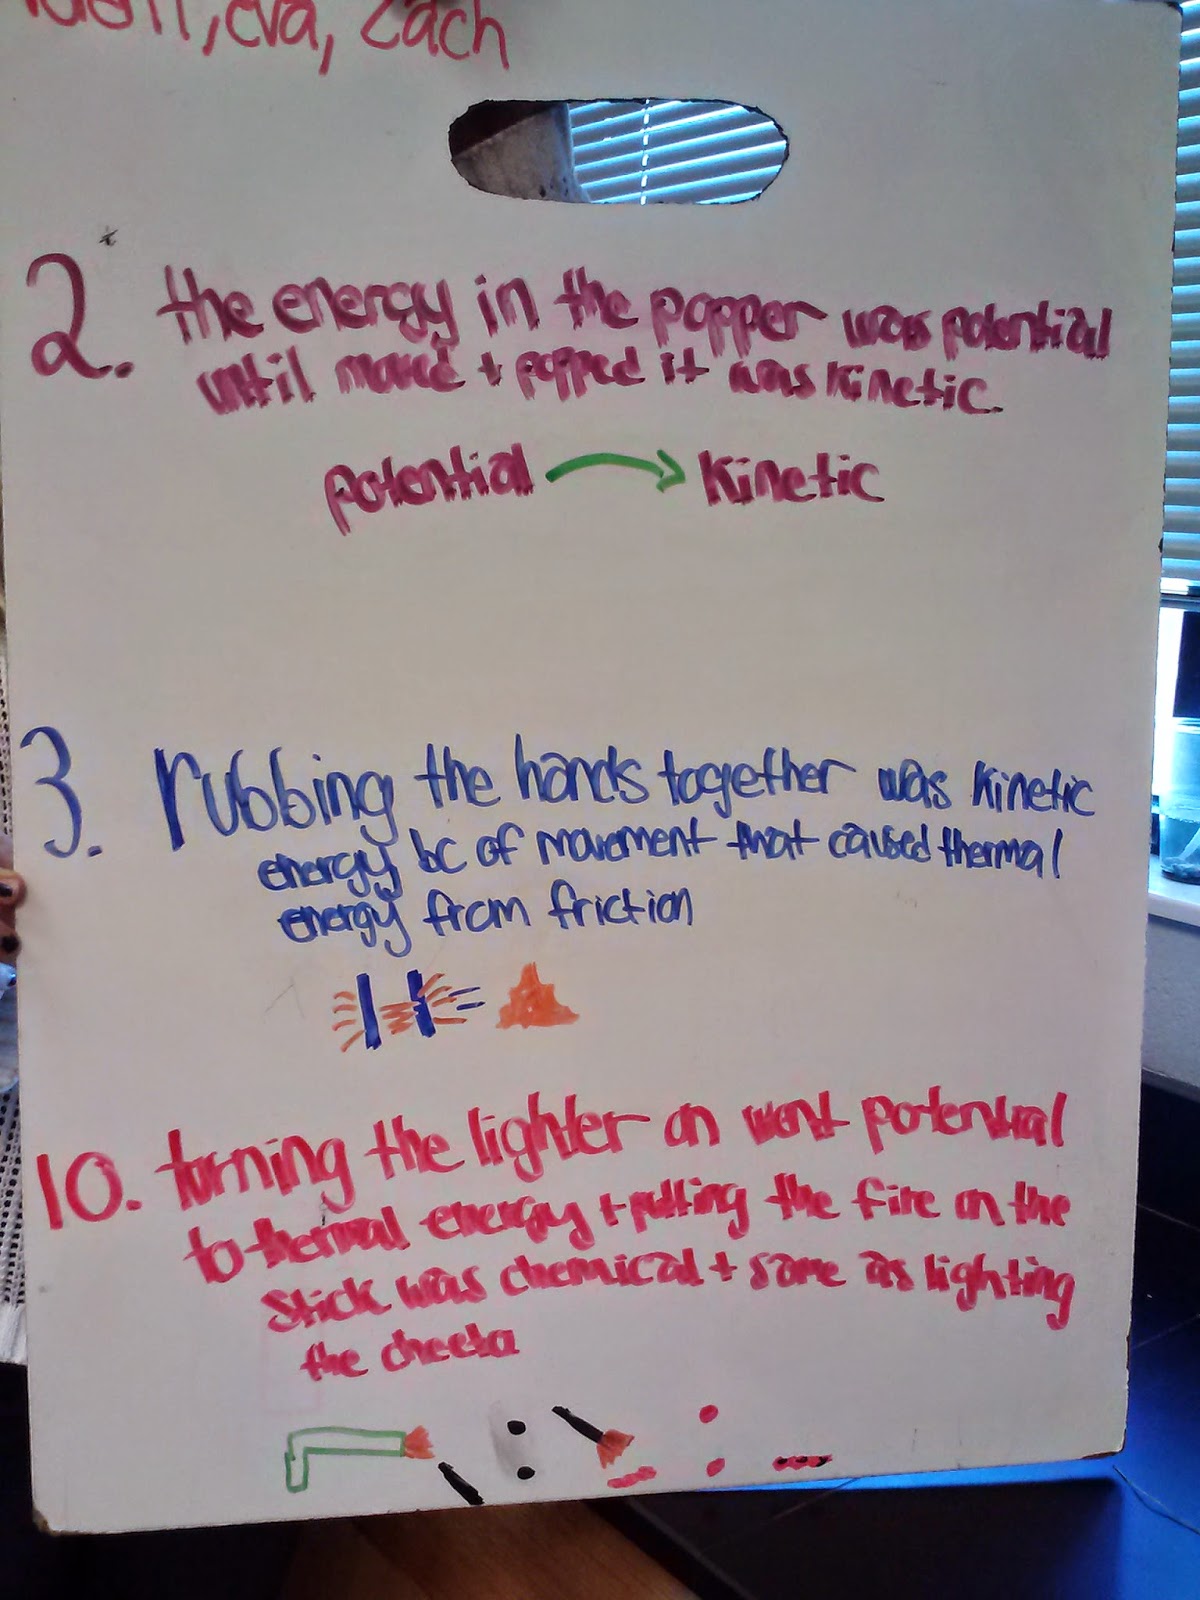 , Eva, Zach
2. the energy in the popper was potential
until moved + popped it was kinetic.
potential → kinetic
3. rubbing the hands together was kinetic
energy bc of movement that caused thermal
energy from friction
10. turning the lighter on went potential
to thermal energy + putting the fire on the
stick was chemical + same as lighting
the cheeta